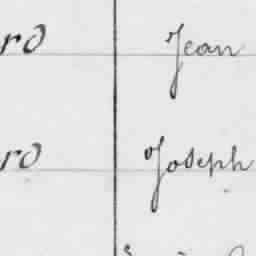 rd Jean
rd Joseph